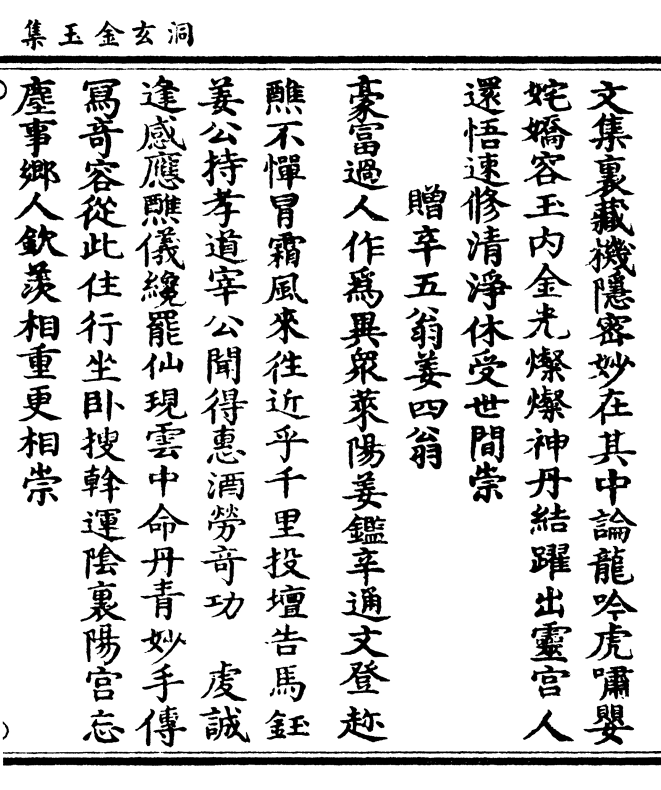 洞玄金玉集
文集裏藏機隱密妙在其中論龍吟虎嘯嬰
姹嬌容玉内金光燦燦神丹結躍出靈宫人
還悟速修清淨休受世間崇
贈卒五翁姜四翁
豪富過人作爲異衆萊陽姜鑑卒通文登赴
醮不憚冐霜風來徃近乎千里投壇告馬鈺
姜公持孝道宰公聞得惠酒勞竒功 虔誠
逢感應醮儀纔罷仙現雲中命丹青妙手傳
冩竒容從此住行坐卧搜斡運陰裏陽宫忘
塵事鄉人欽羡相重更相崇